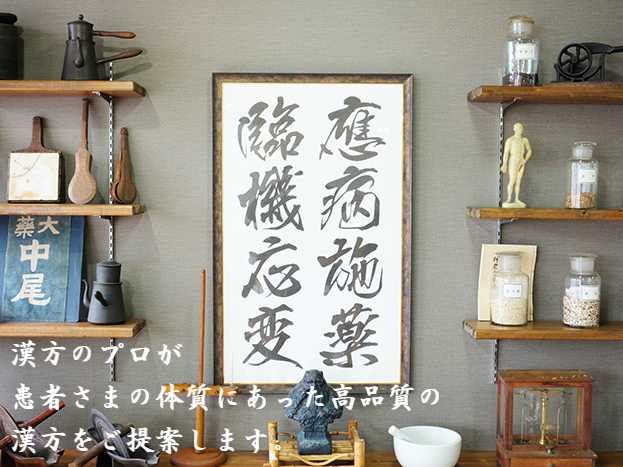 應病施薬
臨機応変
大
薬
中尾
漢方のプロが
患者さまの体質にあった高品質の
漢方をご提案します。